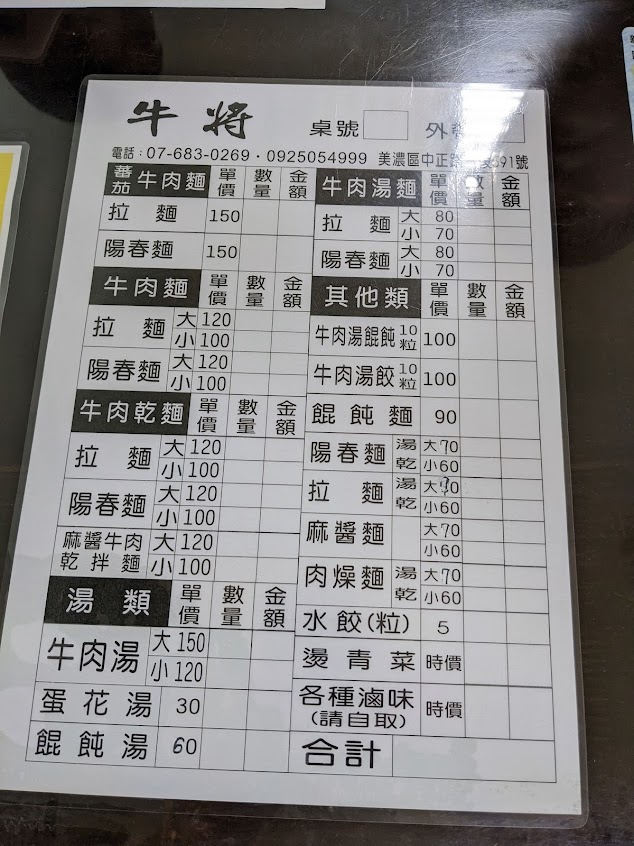 牛將 桌號 外
電話：07-683-0269・0925054999 美濃區中正路 91號
蕃茄 牛肉麵 單價 數量 金額
拉麵 150
陽春麵 150
牛肉麵 單價 數量 金額
拉麵 大 120
小 100
陽春麵 大 120
小 100
牛肉乾麵 單價 數量 金額
拉麵 大 120
小 100
陽春麵 大 120
小 100
麻醬牛肉乾拌麵 大 120
小 100
湯類 單價 數量 金額
牛肉湯 大 150
小 120
蛋花湯 30
餛飩湯 60
牛肉湯麵 單價 數量 金額
拉麵 大 80
小 70
陽春麵 大 80
小 70
其他類 單價 數量 金額
牛肉湯餛飩 10粒 100
牛肉湯餃 10粒 100
餛飩麵 90
陽春麵 湯 大70
乾 小60
拉麵 湯 大70
乾 小60
麻醬麵 大70
小60
肉燥麵 湯 大70
乾 小60
水餃(粒) 5
燙青菜 時價
各種滷味 時價
(請自取)
合計